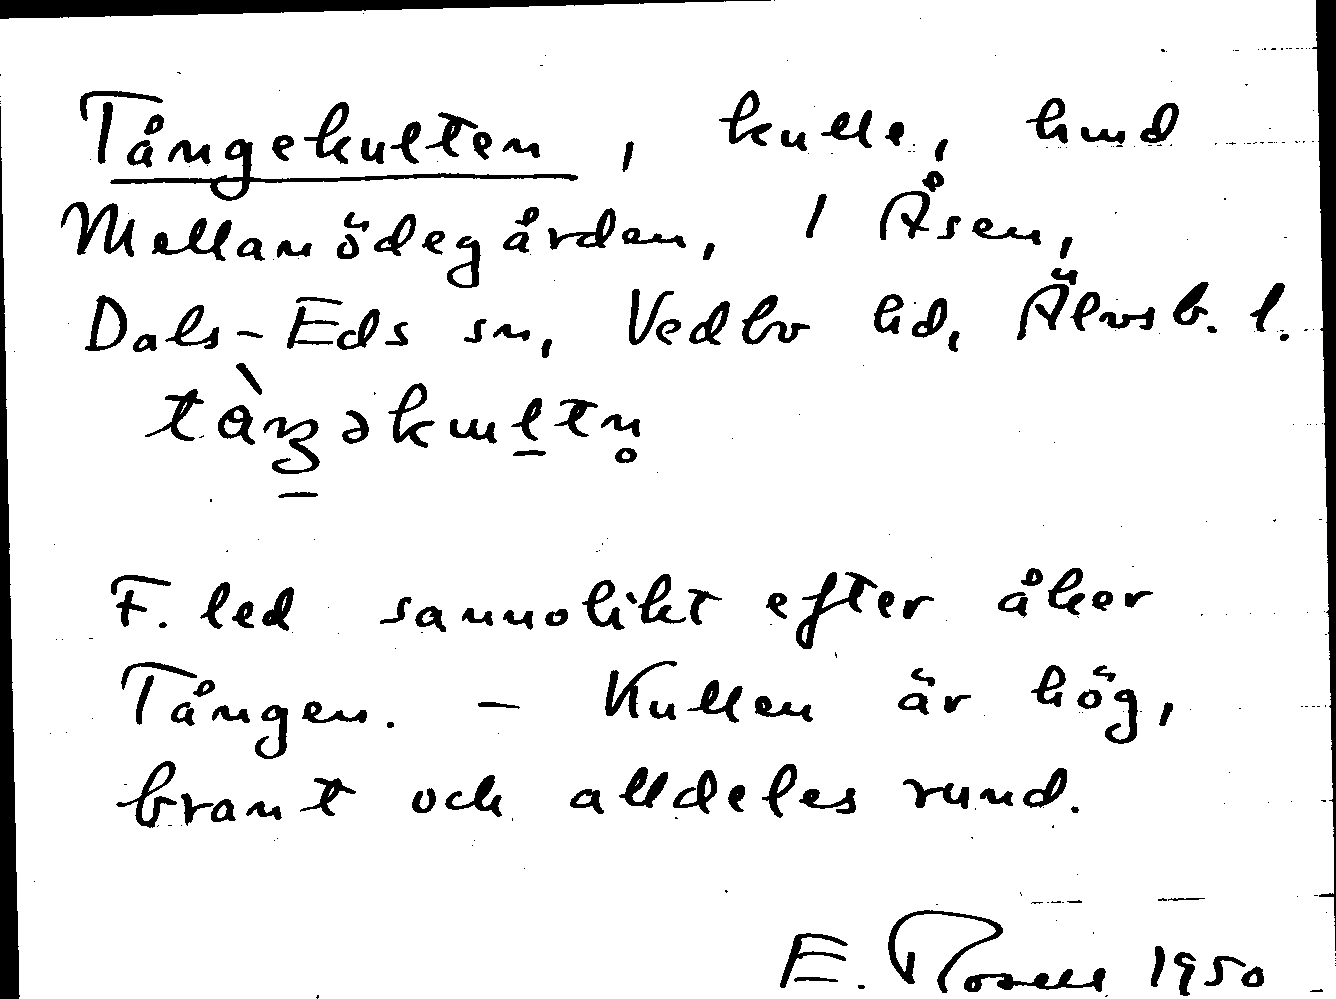 Tångekulten, kulle, hmd
Mellanödegården, 1 Åsen,
Dals-Eds sn, Vedbo hd, Älvsb. l.
F. led sannolikt efter åker
Tången. – Kullen är hög,
brant och alldeles rund.
E. Rosell 1950